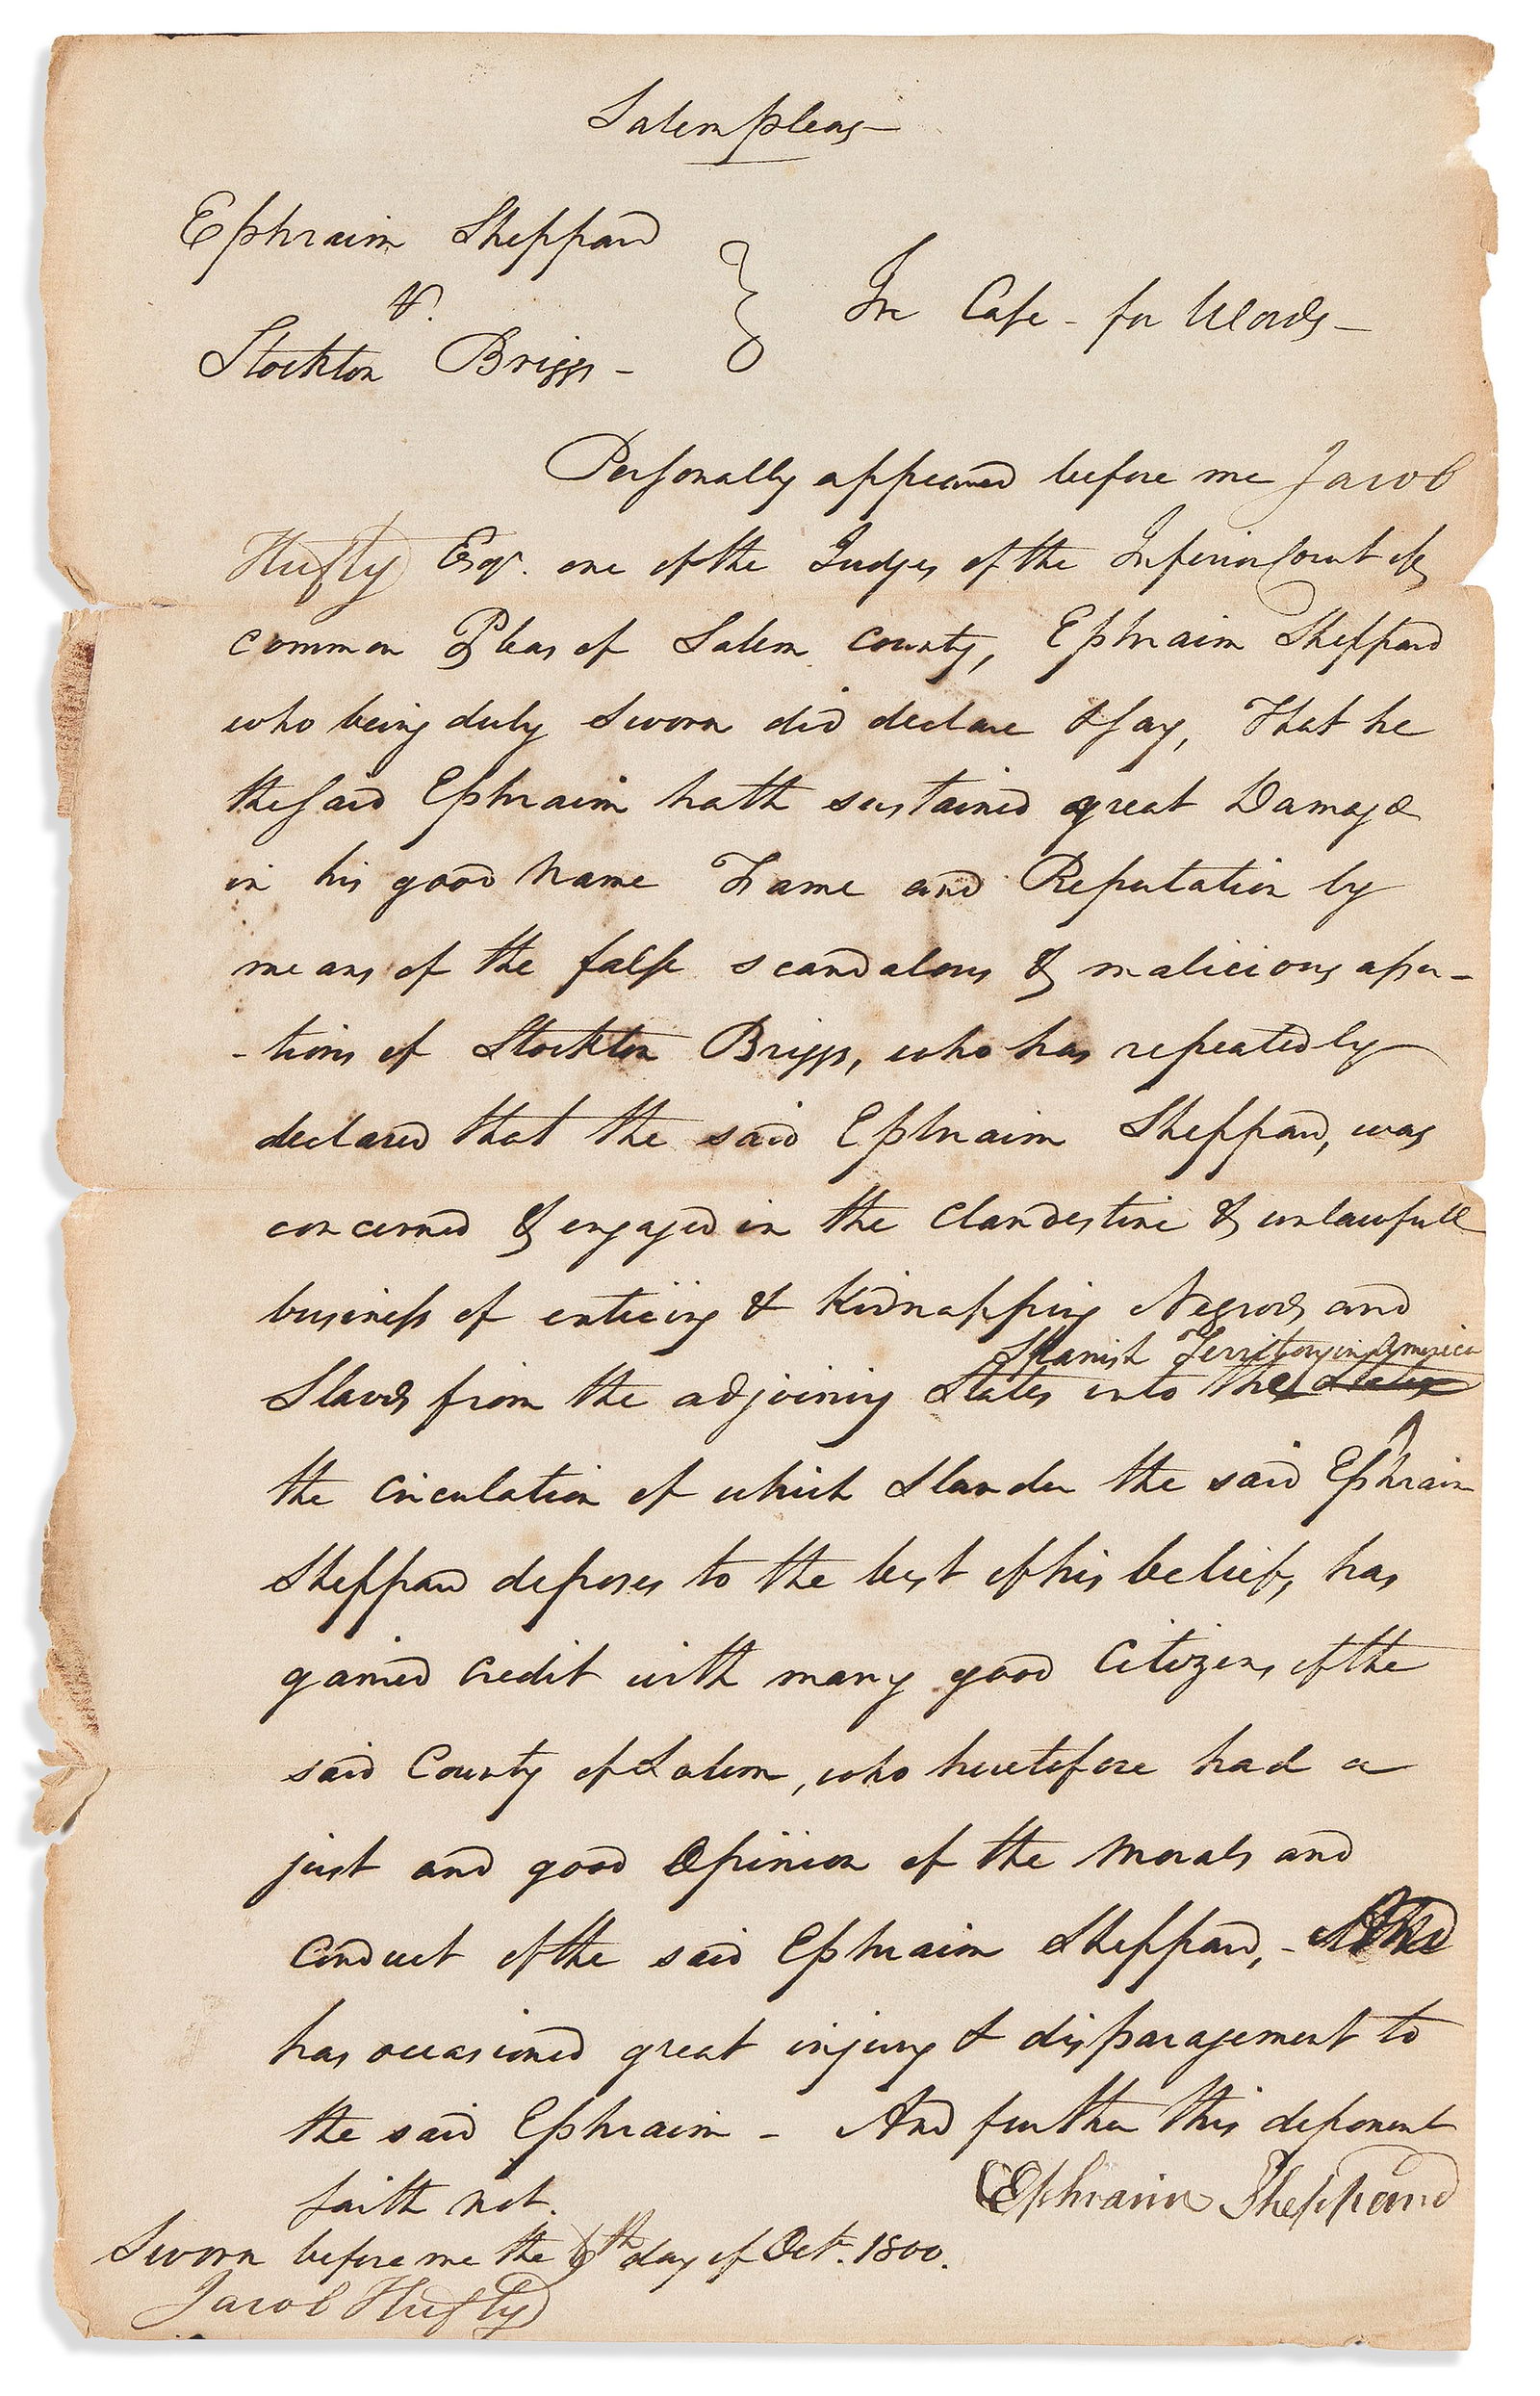 Salem pleas
Ephraim Sheppard
v.
Stockton Briggs -
In Case - for Words -
Personally appeared before me Jacob
Hufty Esqr. one of the Judges of the Inferior Court of
common Pleas of Salem county, Ephraim Sheppard
who being duly sworn did declare & say, That he
the said Ephraim hath sustained great Damage
in his good name Fame and Reputation by
means of the false scandalous & malicious asser-
-tions of Stockton Briggs, who has repeatedly
declared that the said Ephraim Sheppard, was
concerned & engaged in the clandestine & unlawfull
business of enticing & Kidnapping Negroes and
Spanish Territory in America
Slaves from the adjoining States into the
the circulation of which Slander the said Ephraim
Sheppard deposes to the best of his belief, has
gained credit with many good Citizens of the
said County of Salem, who heretofore had a
just and good Opinion of the Morals and
conduct of the said Ephraim Sheppard, -
has occasioned great injury & disparagement to
the said Ephraim - And further this deponent
saith not.
Ephraim Sheppard
Sworn before me the 6th day of Oct. 1800.
Jacob Hufty